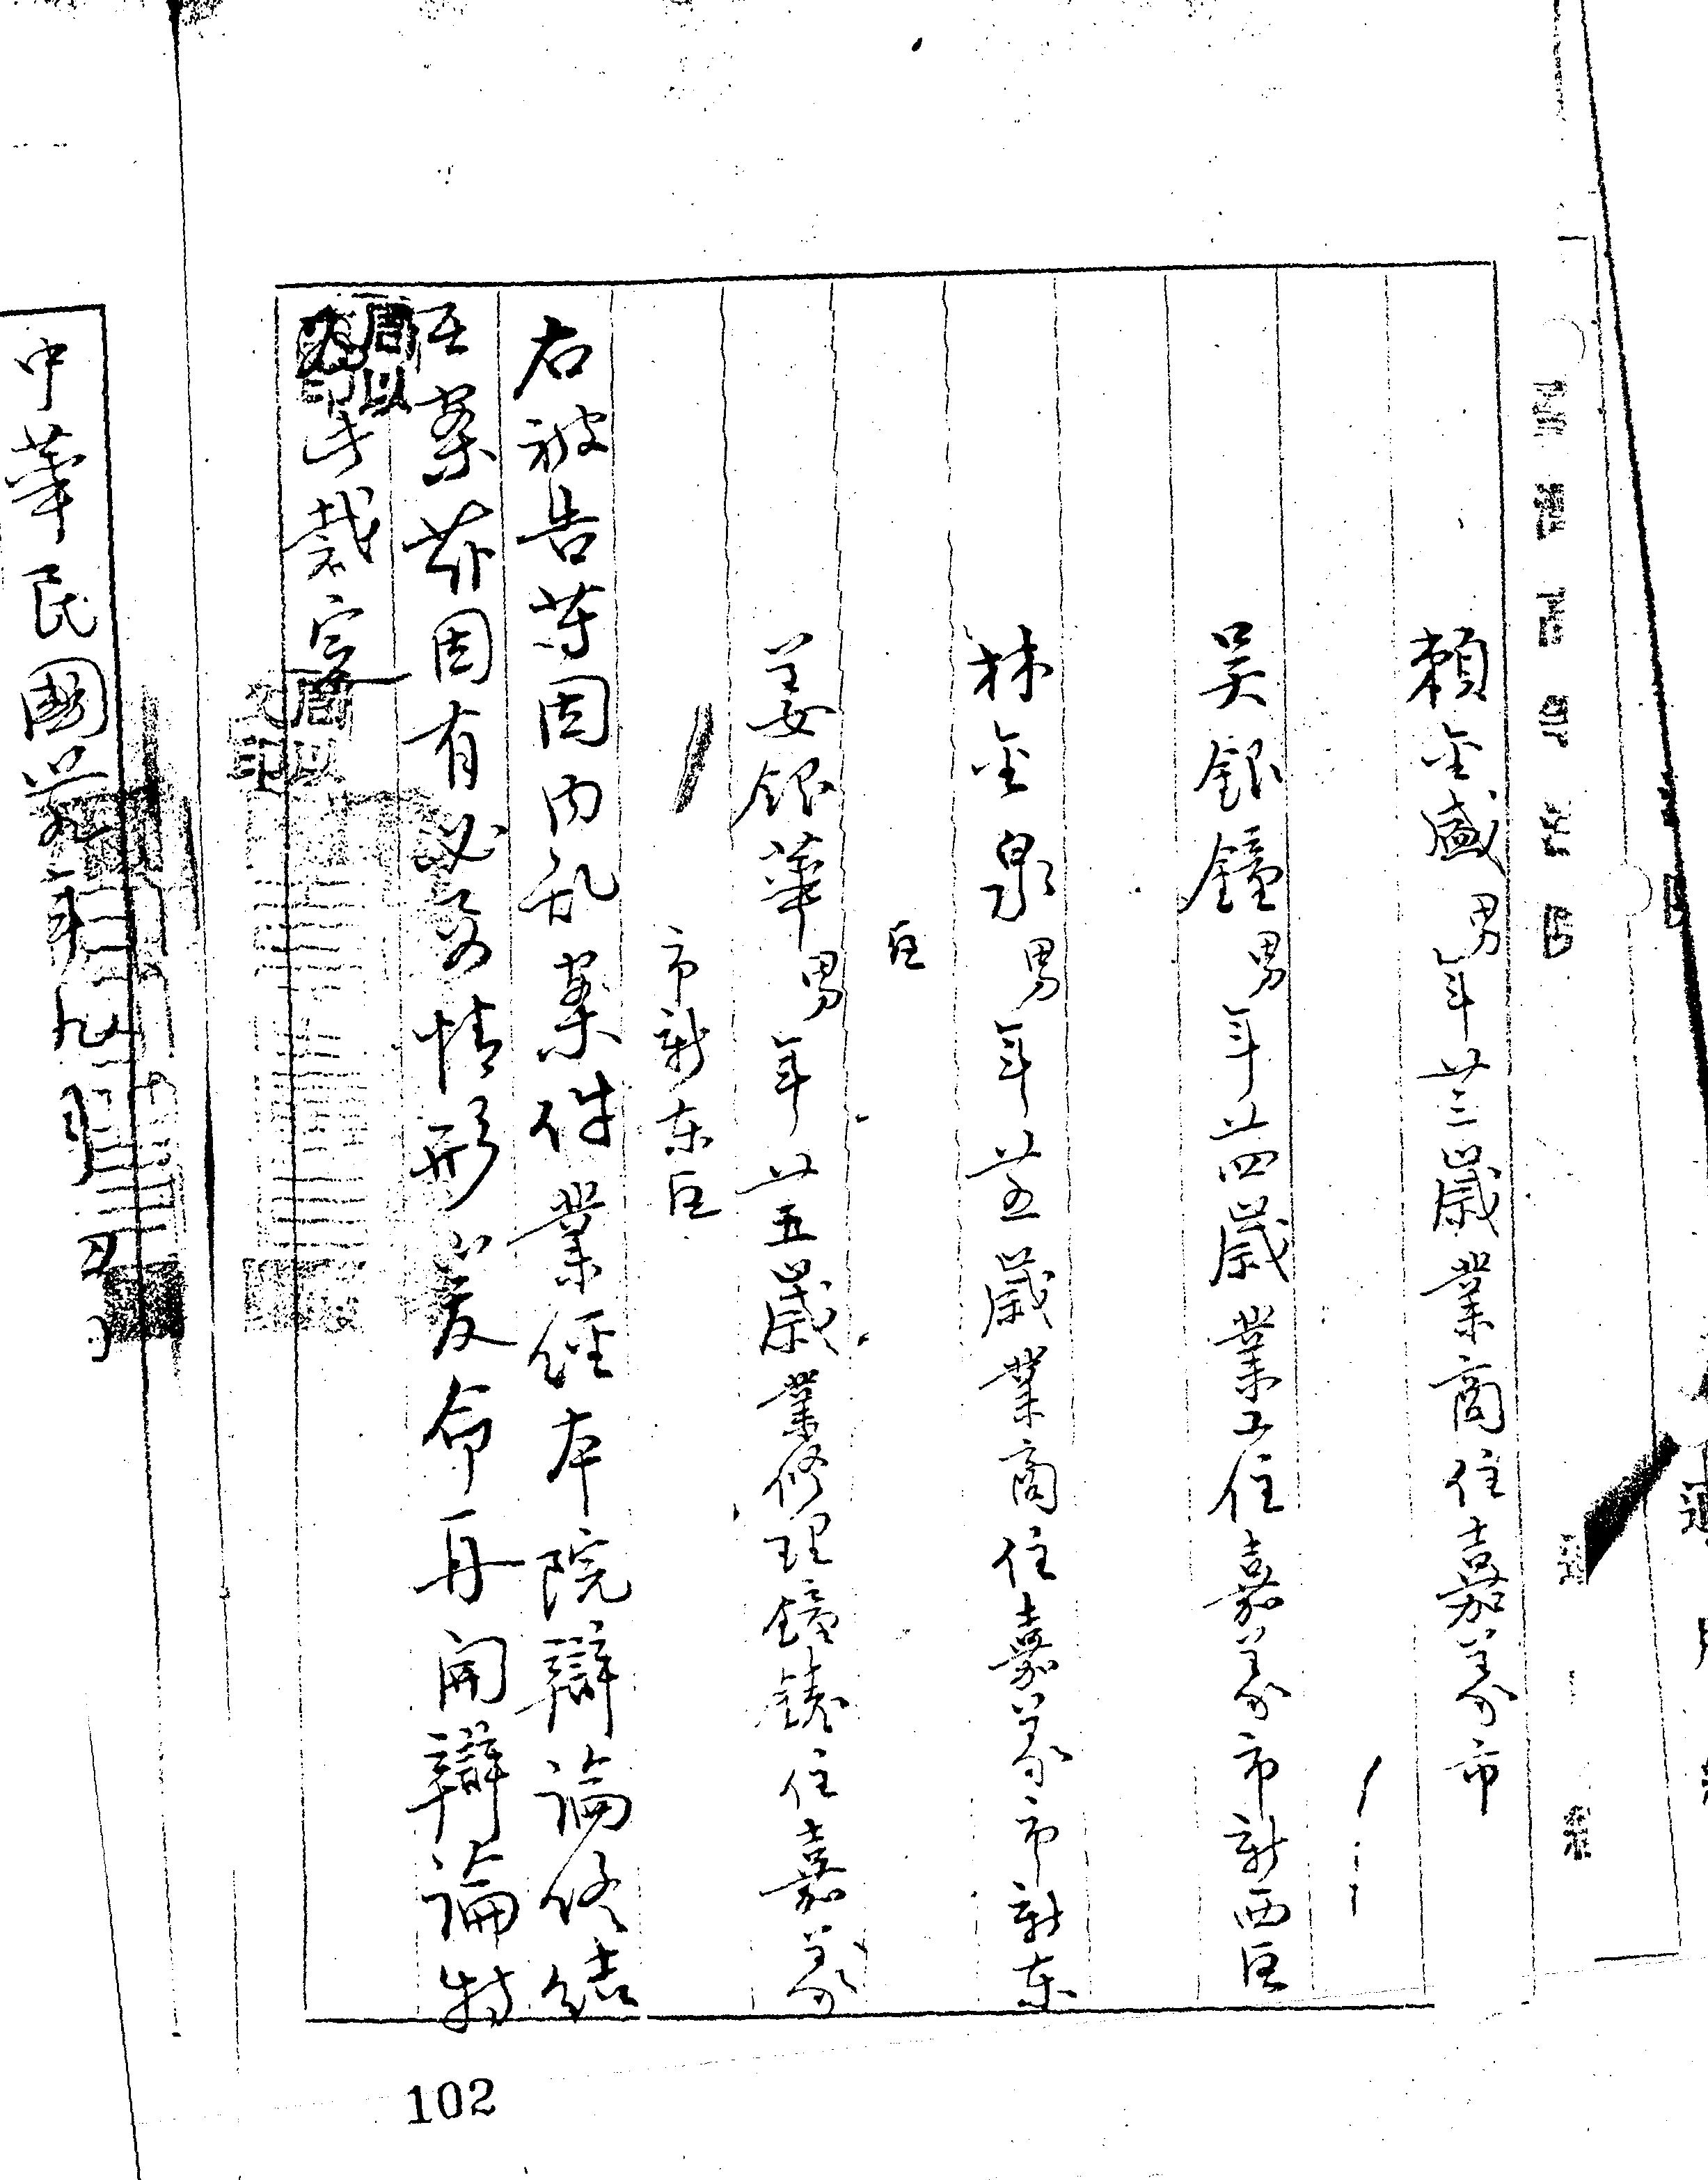 賴金盛男年廿三歲業商住嘉義市
吳銀鐘男年廿四歲業工住嘉義市新西区
林金泉男年廿五歲業商住嘉義市新東
区
姜銀華男年廿五歲業修理鐘錶住嘉義
市新東区
右被告等因內乱案件業經本院辯論終結
在案茲因有必要情形爰命再開辯論特
為此裁定
中華民國年九月日
102